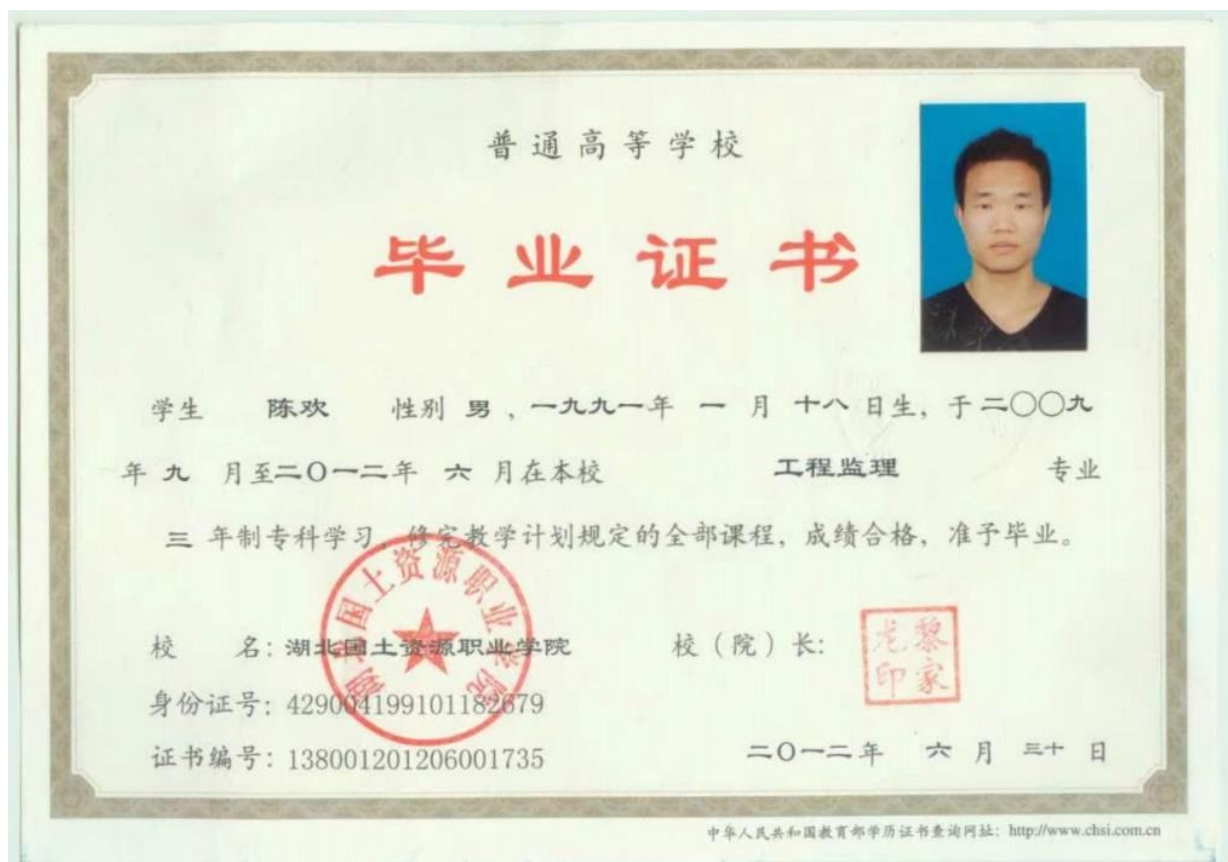 普通高等学校
毕业证书
学生 陈欢 性别 男 ，一九九一年 一 月 十八 日生，于二〇〇九
年 九 月至二〇一二年 六 月在本校 工程监理 专业
三 年制专科学习，修完教学计划规定的全部课程，成绩合格，准予毕业。
湖北国土资源职业学院
校 名：湖北国土资源职业学院 校（院）长：
黎家龙印
身份证号：429004199101182679
证书编号：138001201206001735 二〇一二年 六 月 三十 日
中华人民共和国教育部学历证书查询网址：http://www.chsi.com.cn